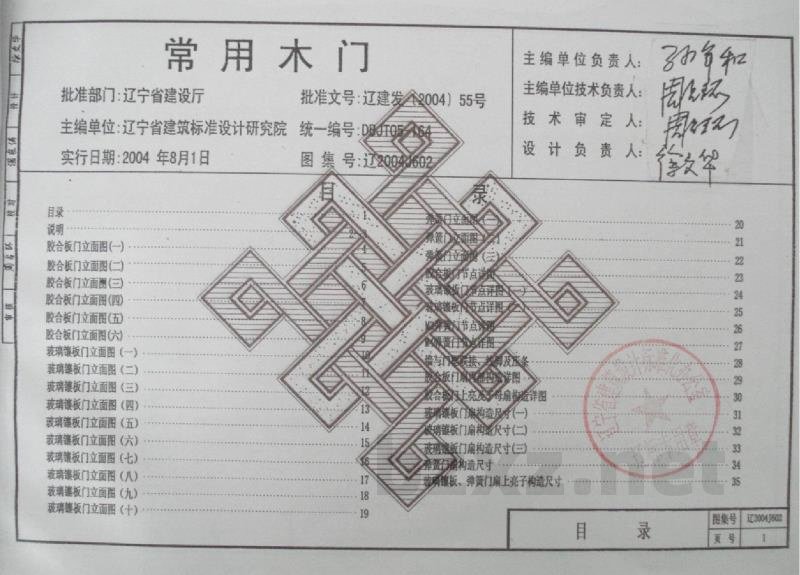 常用木门
批准部门:辽宁省建设厅 批准文号:辽建发〔2004〕55号
主编单位:辽宁省建筑标准设计研究院 统一编号:DBJT05-164
实行日期:2004 年8月1日 图 集 号:辽2004J602
主编单位负责人:
主编单位技术负责人:
技 术 审 定 人:
设 计 负 责 人: 徐文华
目 录
目录 1
说明 2
胶合板门立面图(一) 4
胶合板门立面图(二)
胶合板门立面图(三)
胶合板门立面图(四)
胶合板门立面图(五)
胶合板门立面图(六)
玻璃镶板门立面图(一) 10
玻璃镶板门立面图(二) 11
玻璃镶板门立面图(三) 12
玻璃镶板门立面图(四) 13
玻璃镶板门立面图(五) 14
玻璃镶板门立面图(六) 15
玻璃镶板门立面图(七) 16
玻璃镶板门立面图(八) 17
玻璃镶板门立面图(九) 18
玻璃镶板门立面图(十) 19
弹簧门立面图(一) 20
弹簧门立面图(二) 21
弹簧门立面图(三) 22
胶合板门节点详图 23
玻璃镶板门节点详图(一) 24
玻璃镶板门节点详图(二) 25
弹簧门节点详图 26
弹簧门节点详图 27
28
胶合板门扇构造详图 29
胶合板门上亮及子母扇构造详图 30
玻璃镶板门扇构造尺寸(一) 31
玻璃镶板门扇构造尺寸(二) 32
玻璃镶板门扇构造尺寸(三) 33
弹簧门扇构造尺寸 34
玻璃镶板、弹簧门扇上亮子构造尺寸 35
目 录
图集号 辽2004J602
页 号 1